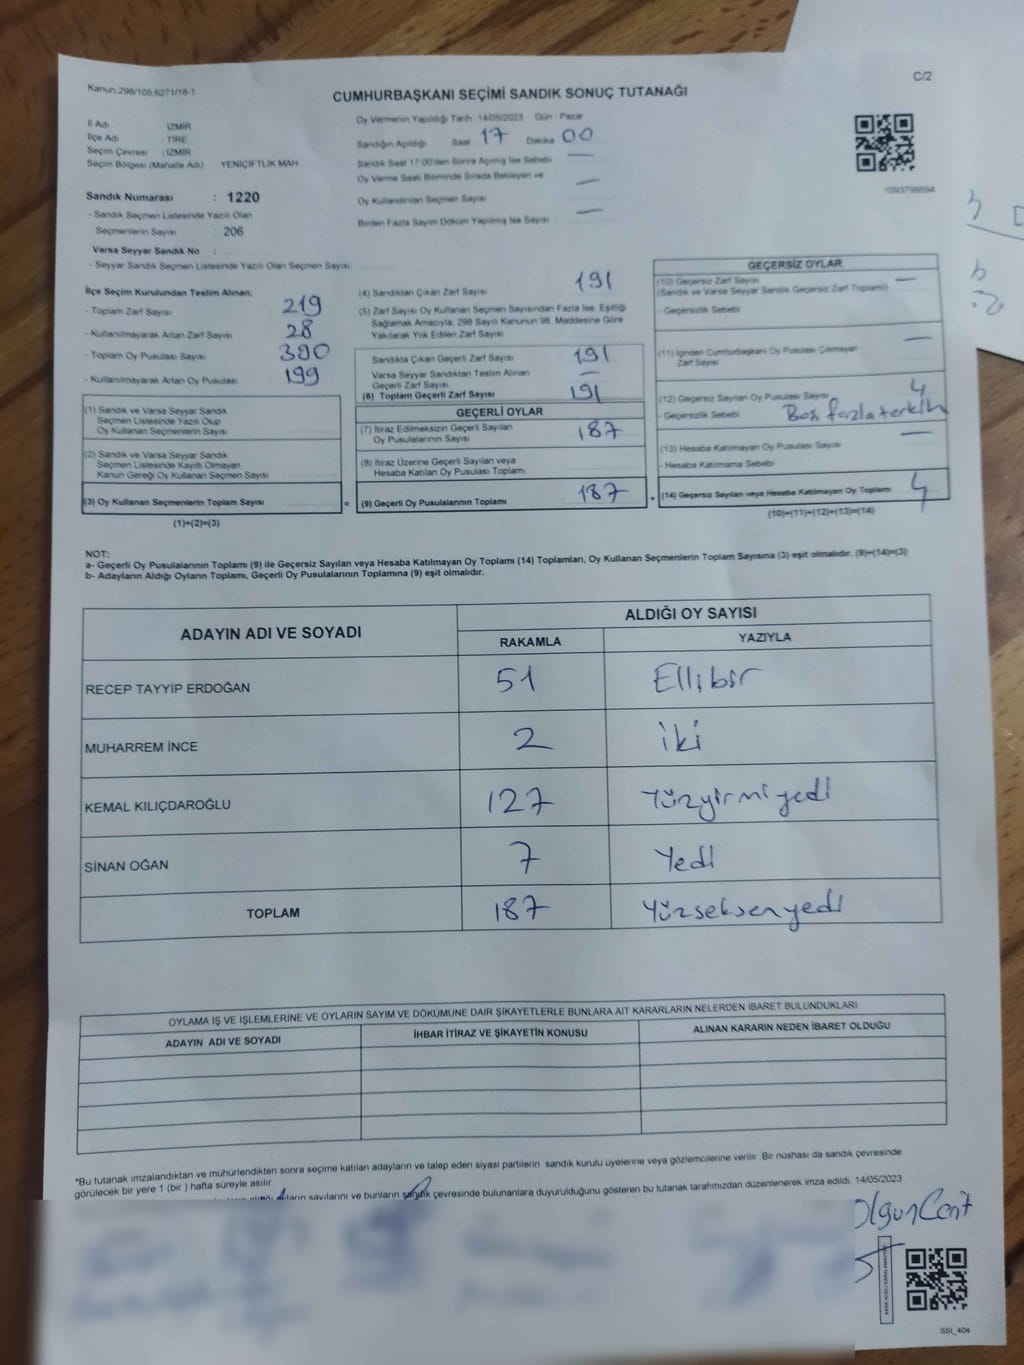 C/2
Kanun.298/105,6271/18-1
CUMHURBAŞKANI SEÇİMİ SANDIK SONUÇ TUTANAĞI
İl Adı İZMİR
İlçe Adı TİRE
Seçim Çevresi : İZMİR
Seçim Bölgesi (Mahalle Adı) YENİÇİFTLİK MAH
Sandık Numarası : 1220
- Sandık Seçmen Listesinde Yazılı Olan
Seçmenlerin Sayısı : 206
Varsa Seyyar Sandık No :
- Seyyar Sandık Seçmen Listesinde Yazılı Olan Seçmen Sayısı
Oy Vermenin Yapıldığı Tarih : 14/05/2023 Gün : Pazar
Sandığın Açıldığı Saat 17 Dakika 00
Sandık Saat 17:00'den Sonra Açılmış İse Sebebi —
Oy Verme Saati Bitiminde Sırada Bekleyen ve
Oy Kullandırılan Seçmen Sayısı —
Birden Fazla Sayım Döküm Yapılmış İse Sayısı —
1093799594
İlçe Seçim Kurulundan Teslim Alınan;
- Toplam Zarf Sayısı 219
- Kullanılmayarak Artan Zarf Sayısı 28
- Toplam Oy Pusulası Sayısı 390
- Kullanılmayarak Artan Oy Pusulası 199
(1) Sandık ve Varsa Seyyar Sandık
Seçmen Listesinde Yazılı Olup
Oy Kullanan Seçmenlerin Sayısı
(2) Sandık ve Varsa Seyyar Sandık
Seçmen Listesinde Kayıtlı Olmayan
Kanun Gereği Oy Kullanan Seçmen Sayısı
(3) Oy Kullanan Seçmenlerin Toplam Sayısı =
(1)+(2)=(3)
(4) Sandıktan Çıkan Zarf Sayısı 191
(5) Zarf Sayısı Oy Kullanan Seçmen Sayısından Fazla İse, Eşitliği
Sağlamak Amacıyla, 298 Sayılı Kanunun 98. Maddesine Göre
Yakılarak Yok Edilen Zarf Sayısı
Sandıkta Çıkan Geçerli Zarf Sayısı 191
Varsa Seyyar Sandıktan Teslim Alınan
Geçerli Zarf Sayısı —
(6) Toplam Geçerli Zarf Sayısı 191
GEÇERLİ OYLAR
(7) İtiraz Edilmeksizin Geçerli Sayılan
Oy Pusulalarının Sayısı 187
(8) İtiraz Üzerine Geçerli Sayılan veya
Hesaba Katılan Oy Pusulası Toplamı
(9) Geçerli Oy Pusulalarının Toplamı 187 +
GEÇERSİZ OYLAR
(10) Geçersiz Zarf Sayısı —
(Sandık ve Varsa Seyyar Sandık Geçersiz Zarf Toplamı)
- Geçersizlik Sebebi
(11) İçinden Cumhurbaşkanı Oy Pusulası Çıkmayan
Zarf Sayısı —
(12) Geçersiz Sayılan Oy Pusulası Sayısı 4
- Geçersizlik Sebebi Boş fazla tercih
(13) Hesaba Katılmayan Oy Pusulası Sayısı —
- Hesaba Katılmama Sebebi
(14) Geçersiz Sayılan veya Hesaba Katılmayan Oy Toplamı 4
(10)+(11)+(12)+(13)=(14)
NOT:
a- Geçerli Oy Pusulalarının Toplamı (9) ile Geçersiz Sayılan veya Hesaba Katılmayan Oy Toplamı (14) Toplamları, Oy Kullanan Seçmenlerin Toplam Sayısına (3) eşit olmalıdır. (9)+(14)=(3)
b- Adayların Aldığı Oyların Toplamı, Geçerli Oy Pusulalarının Toplamına (9) eşit olmalıdır.
ADAYIN ADI VE SOYADI ALDIĞI OY SAYISI
RAKAMLA YAZIYLA
RECEP TAYYİP ERDOĞAN 51 Ellibir
MUHARREM İNCE 2 iki
KEMAL KILIÇDAROĞLU 127 Yüzyirmiyedi
SİNAN OĞAN 7 Yedi
TOPLAM 187 Yüzseksenyedi
OYLAMA İŞ VE İŞLEMLERİNE VE OYLARIN SAYIM VE DÖKÜMÜNE DAİR ŞİKAYETLERLE BUNLARA AİT KARARLARIN NELERDEN İBARET BULUNDUKLARI
ADAYIN ADI VE SOYADI İHBAR İTİRAZ VE ŞİKAYETİN KONUSU ALINAN KARARIN NEDEN İBARET OLDUĞU
*Bu tutanak imzalandıktan ve mühürlendikten sonra seçime katılan adayların ve talep eden siyasi partilerin sandık kurulu üyelerine veya gözlemcilerine verilir. Bir nüshası da sandık çevresinde
görülecek bir yere 1 (bir ) hafta süreyle asılır.
sayılarını ve bunların sandık çevresinde bulunanlara duyurulduğunu gösteren bu tutanak tarafımızdan düzenlenerek imza edildi. 14/05/2023
SSI_404